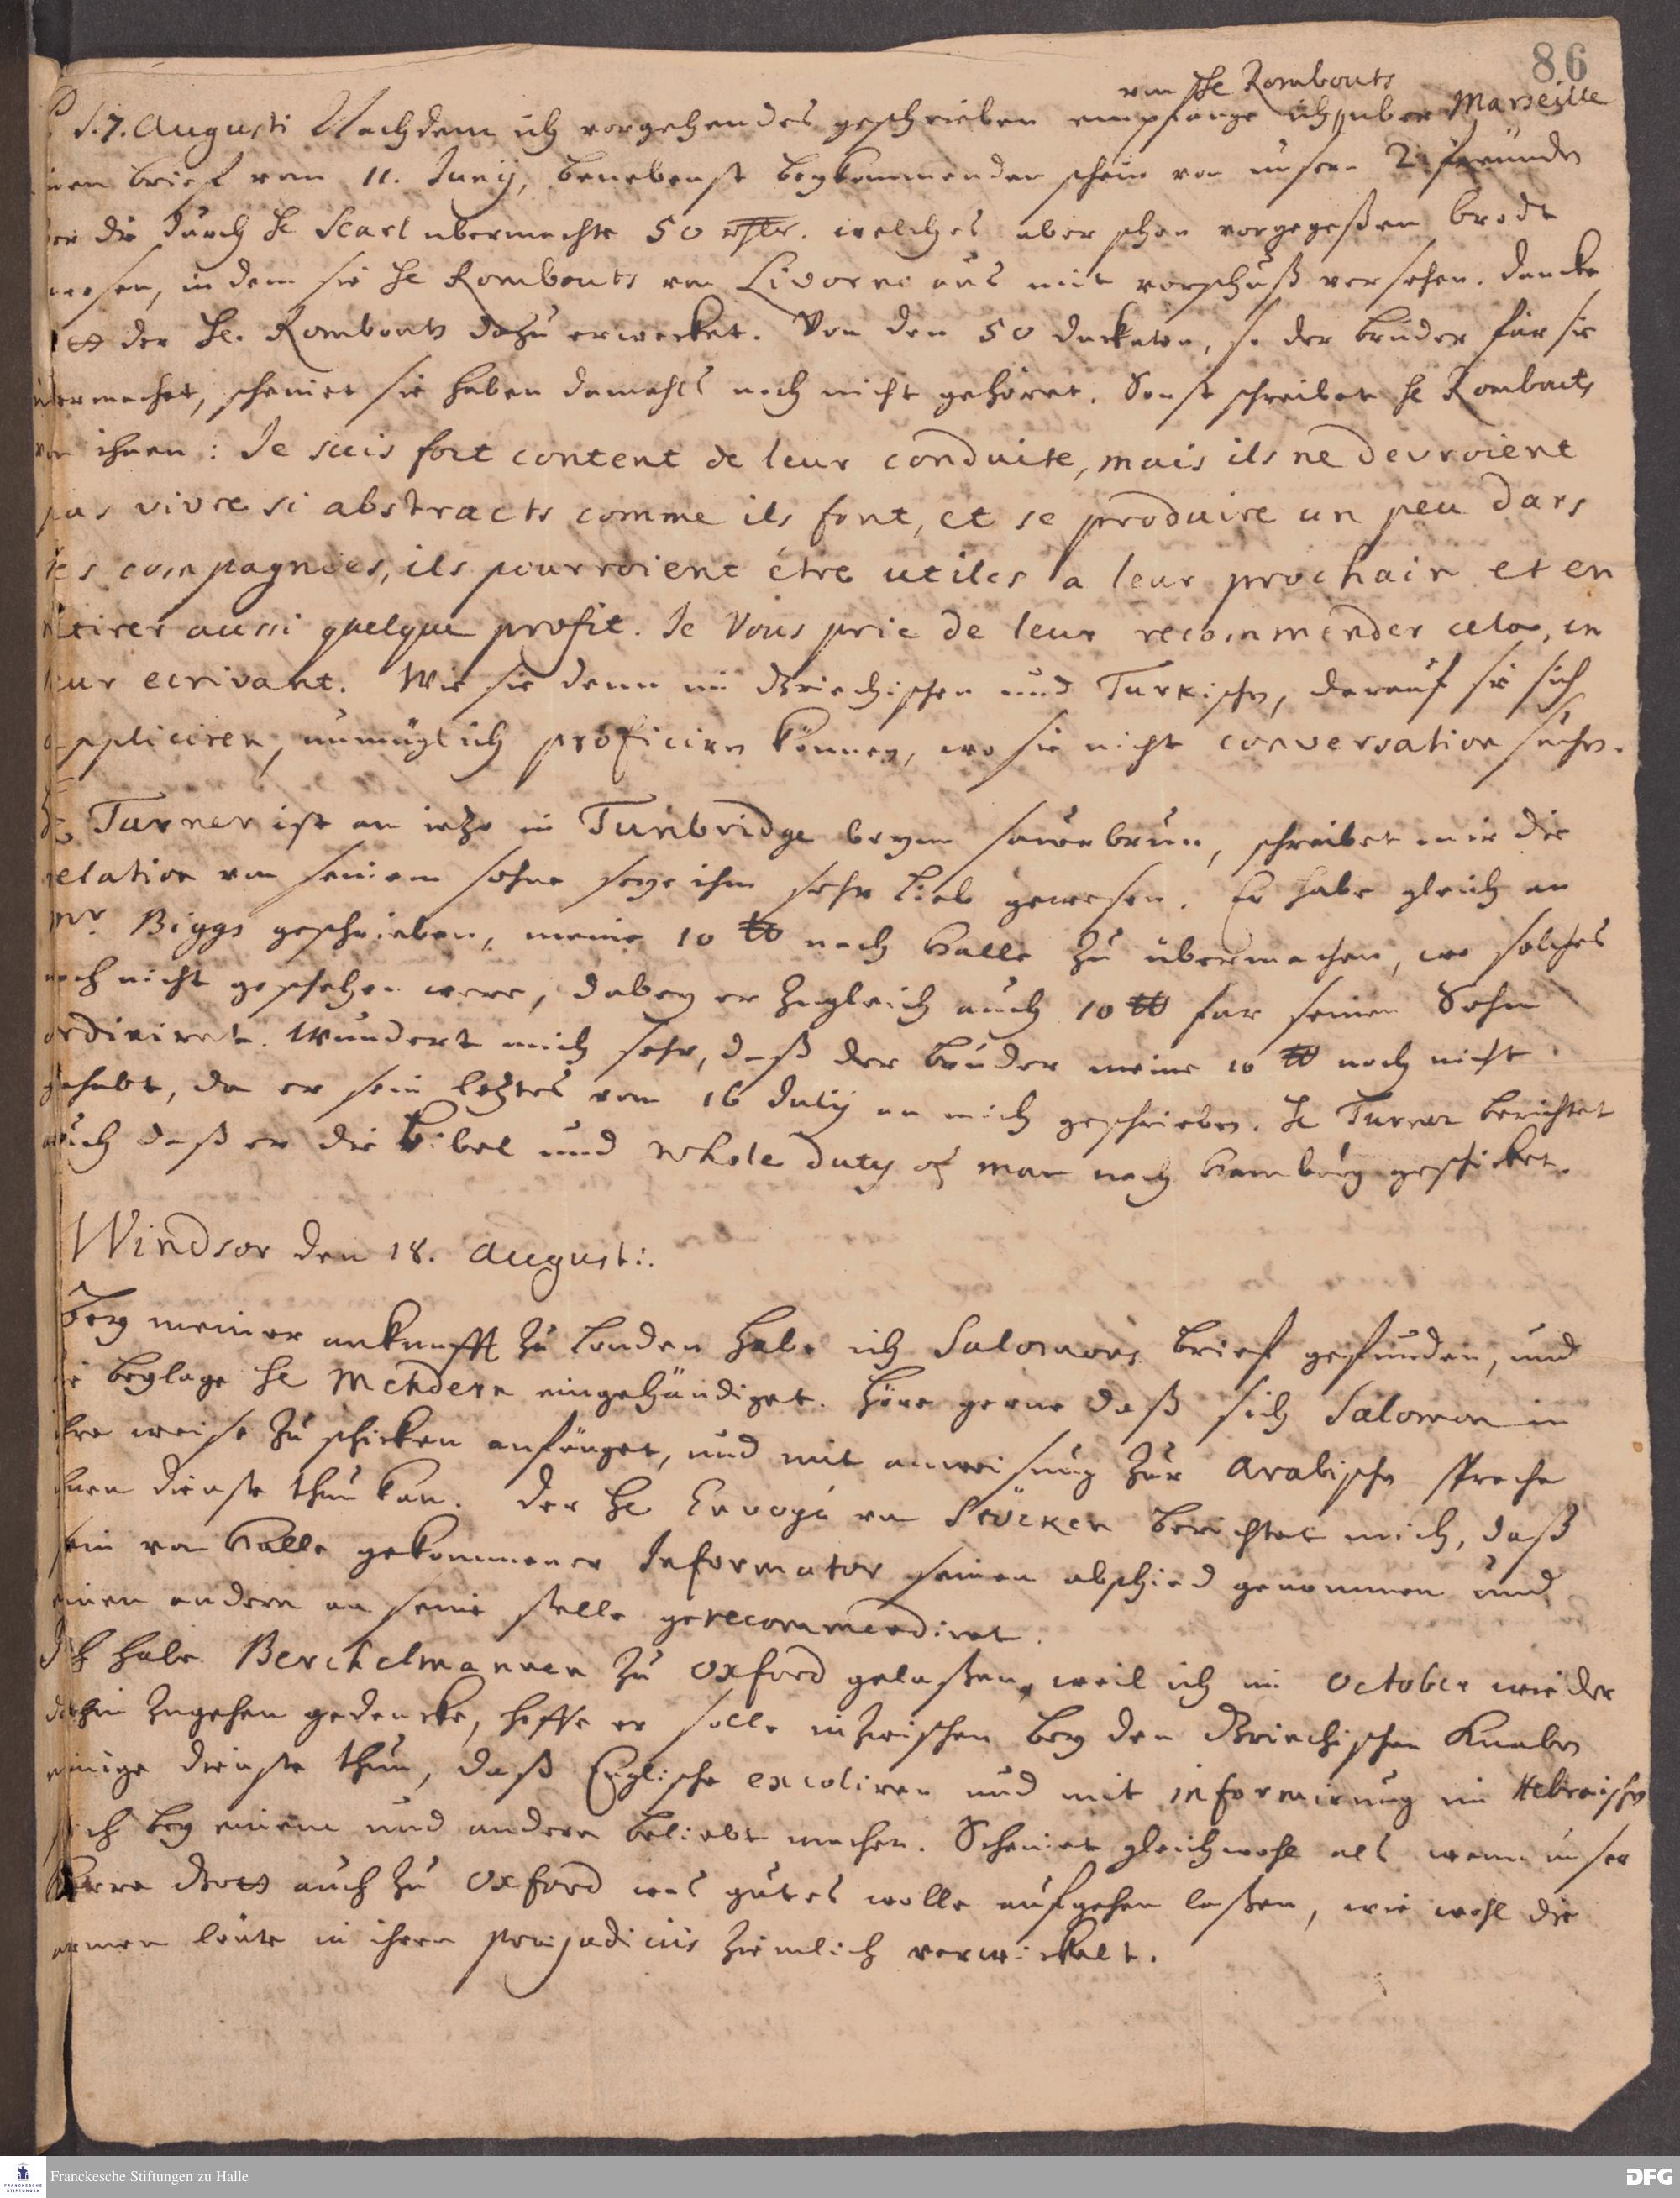 86
von He Rombouts
d. 7. Augusti Nachdem ich vorgehendes geschrieben empfange ich uber Marseille
einen brief vom 11. Junij, benebenst beykommenden schein von unsern 2 freunden
uber die durch He Scarl ubermachte 50 rthlr. welches aber schon vorgegeßen brodt
gewesen, in dem sie He Rombouts von Livorno aus mit vorschuß versehen. dancke
Gott der He. Rombouts dazu erwecket. Von den 50 duckaten, so der bruder fur sie
ubermachet, scheinet sie haben damahls noch nicht gehöret. Sonst schreibet He Rombouts
von ihnen: Je suis fort content de leur conduite, mais ils ne devroient
pas vivre si abstracts comme ils font, et se produire un peu dans
les compagnies, ils pourroient être utiles a leur prochain et en
retirer aussi quelque profit. Je Vous prie de leur recommender cela, en
leur ecrivant. Wie sie denn im Griechischen und Turkischen, darauf sie sich
appliciren, unmüglich proficiren können, wo sie nicht conversation suchen.
He Turner ist an ietzo in Tunbridge beym sauerbrun, schreibet mir die
relation von seinem sohne seye ihm sehr lieb gewesen. Er habe gleich an
Mr Biggs geschrieben, meine 10 ℔ nach Halle zu übermachen, wo solches
noch nicht geschehen were, dabey er zugleich auch 10 ℔ fur seinen Sohn
ordiniret. Wundert mich sehr, daß der bruder meine 10 ℔ noch nicht
gehabt, da er sein letztes vom 16 Julij an mich geschrieben. He Turner berichtet
auch daß er die bibel und whole duty of man nach Hamburg geschicket.
Windsor den 18. Augusti.
Bey meiner ankunfft zu Londen habe ich Salomons brief gefunden, und
die beylage He Mendern eingehändiget. Höre gerne daß sich Salomon in
ihre weise zu schicken anfänget, und mit anweisung zur Arabischen sprache
ihnen dienste thun kan. Der He Envoyé von Stöcken berichtet mich, daß
sein von Halle gekommener Informator seinen abschied genommen und
einen andern an seine stelle gerecommendiret.
Ich habe Berchelmannen zu Oxford gelaßen, weil ich im October wieder
dahin zugehen gedencke, hoffe er solle inzwischen bey den Griechischen Knaben
einige dienste thun, daß Englische excoliren und mit informirung im Hebreischen
sich bey einem und andern beliebt machen. Scheinet gleichwohl als wenn unser
Herre Gott auch zu Oxford was gutes wolle aufgehen laßen, wie wohl die
armen leute in ihren præjudiciis ziemlich verwickelt.
Franckesche Stiftungen zu Halle
DFG